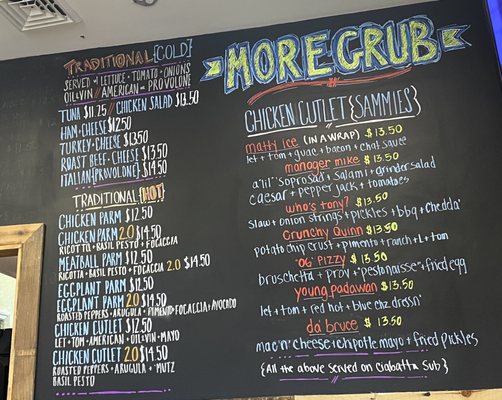 TRADITIONAL {COLD}
SERVED W/ LETTUCE • TOMATO • ONIONS
OIL+VIN // AMERICAN OR PROVOLONE
TUNA $11.25 // CHICKEN SALAD $13.50
HAM+CHEESE $12.50
TURKEY+CHEESE $13.50
ROAST BEEF+CHEESE $14.50
ITALIAN {PROVOLONE} $14.50
TRADITIONAL {HOT}
CHICKEN PARM $12.50
CHICKEN PARM 2.0 $14.50
RICOTTA + BASIL PESTO + FOCACCIA
MEATBALL PARM $12.50
RICOTTA + BASIL PESTO + FOCACCIA 2.0 $14.50
EGGPLANT PARM $12.50
EGGPLANT PARM 2.0 $14.50
ROASTED PEPPERS + ARUGULA + PIMENTO + FOCACCIA + AVOCADO
CHICKEN CUTLET $12.50
LET + TOM + AMERICAN + OIL+VIN + MAYO
CHICKEN CUTLET 2.0 $14.50
ROASTED PEPPERS + ARUGULA + MUTZ
BASIL PESTO
MORE GRUB
CHICKEN CUTLET {SAMMIES}
matty ice (IN A WRAP) $13.50
let + tom + guac + bacon + chal sauce
manager mike $13.50
a'lil' soprosad + salami + grinder salad
caesar + pepper jack + tomatoes
who's tony? $13.50
slaw + onion strings + pickles + bbq + chedda'
Crunchy Quinn $13.50
potato chip crust + pimento + ranch + L + tom
"OG" Pizzy $13.50
bruschetta + prov + 'pestonaisse' + fried egg
young padawan $13.50
let + tom + red hot + blue chz dressn'
da' bruce $13.50
mac'n'cheese + chipotle mayo + fried pickles
{All the above served on Ciabatta Sub}